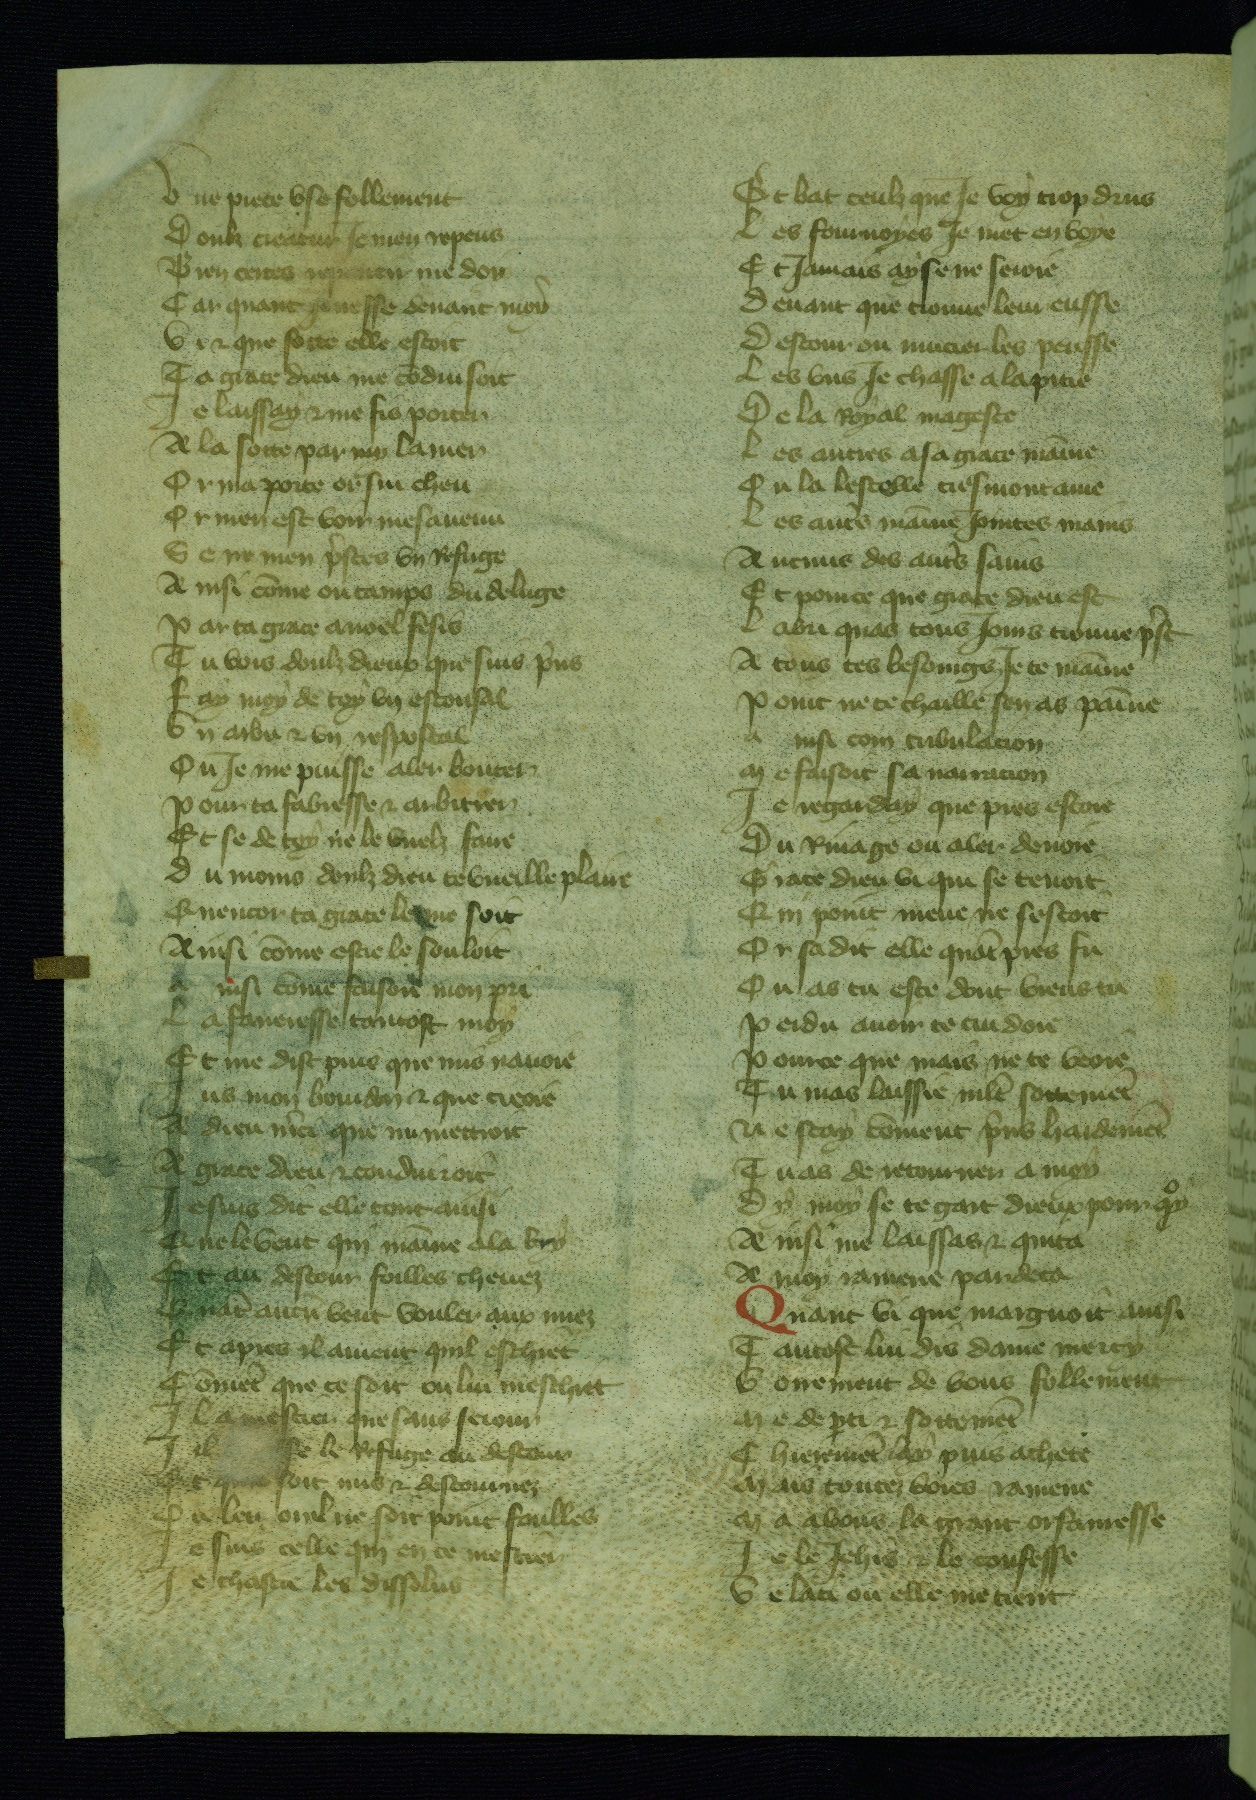 V ne piece vse follement
D oulz createur Je men repens
B ien certes repentir me doy
C ar quant jeunesse deuant moy
V i & que sotte elle estoit
T a grace dieu me cōduisoit
J e laissay & me fis porter
A la sotte par my la mer
O r ma porte or sui cheu
O r men est voir mesauenu
S e ne men p̄stes vn Refuge
A insi cōme ou tamps du deluge
P ar ta grace a noel fesis
T u vois doulz dieux que suis p̄ns
F ay moy de toy vn escousal
V n arbre & vn respostal
O u Je me puisse aler bouter
P our ta sabiesse & arbitrer
E t se de toy ne le vuelz faire
D u moins doulz dieu te vueille plaire
Q uencor ta grace le me soit
A insi cōme estre le souloit
a insi cōme faisoie mon pri
L a faueresse tantost moy
E t me dist puis que mis nauoie
J us mon bourdon & que creoie
A dieu m̄ci que mi mettroit
A grace dieu & conduiroit
J e suis dit elle tout ainsi
Q ue le vent qui māine a la kry
E t au destour foilles cheuez
Q uāt aucū veut vouler aux nuez
E t apres il auient quil eschiet
C ōmēt que ce soit ou lui meschiet
J l a mestier que sans seiour
J il se le Refuge au destour
E t soit mis & destournez
O u leu ou il ne soit point foullés
J e suis celle qui en ce mestier
J e chastie les dissolus
E t bat ceulz que Je voy trop drus
L es fouruoyes Je met en voye
E t Jamais ayse ne seroie
D euant que trouue leur eusse
D estour ou mucier les peusse
L es vns Je chasse a la pitié
D e la Royal mageste
L es autres a sa grace māine
O u la lestelle tresmontaine
L es aut̄s māine Jointes mains
A ucuns des aut̄s sains
E t pource que grace dieu est
L abri quas tous Jours trouue p̄st
A tous tes besoings Je te māine
P oint ne te chaille sen as pāine
a insi com tribulacion
M e faisoit sa narracion
J e regarday que pres estoie
D u Riuage ou aler deuoie
G race dieu vi qui se tenoit
Q ui point meue ne sestoit
O r sa dit elle quāt pres fu
O u as tu este dont viens tu
P erdu auoir te cuidoie
P ource que mais ne te veoie
T u mas laissie mlt̄ sottemēt
N e scay cōment p̄ns hardemēt
T u as de retourner a moy
D y moy se te gart dieux pour q̊y
A insi me laissas & quita
A moy ramene par deca
Quant vi que marguoit ainsi
T antost lui dis dame mercy
V oirement de vous follement
M e depti & sottemēt
C hieremēt lay puis achete
M ais toutez voies ramene
M a a vous la grant orfauresse
J e le Jehis & le confesse
V e la ci ou elle me tient